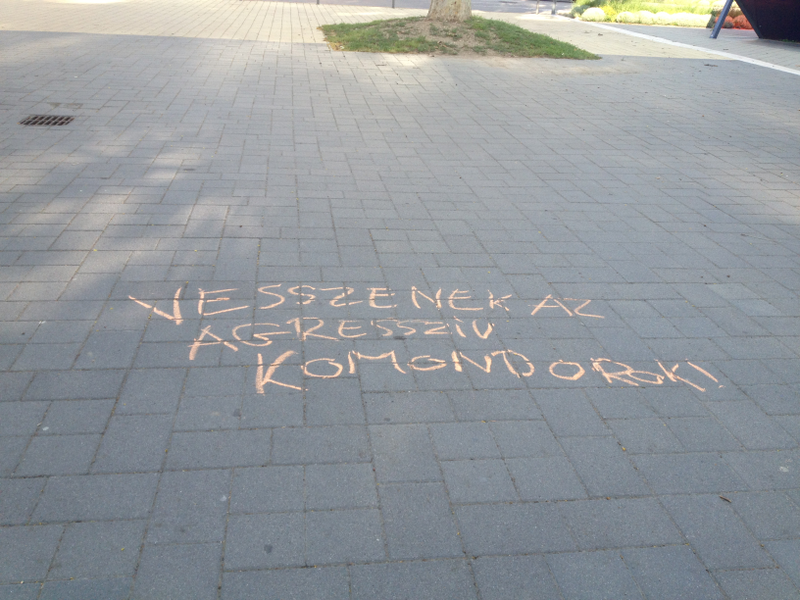 VESSZENEK AZ
AGRESSZIV
KOMONDOROK!